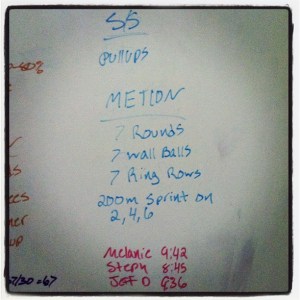 5/5
pullups
METCON
7 Rounds
7 Wall Balls
7 Ring Rows
200m Sprint on
2,4,6
Melanie 9:42
Steph 8:45
JEF D 936